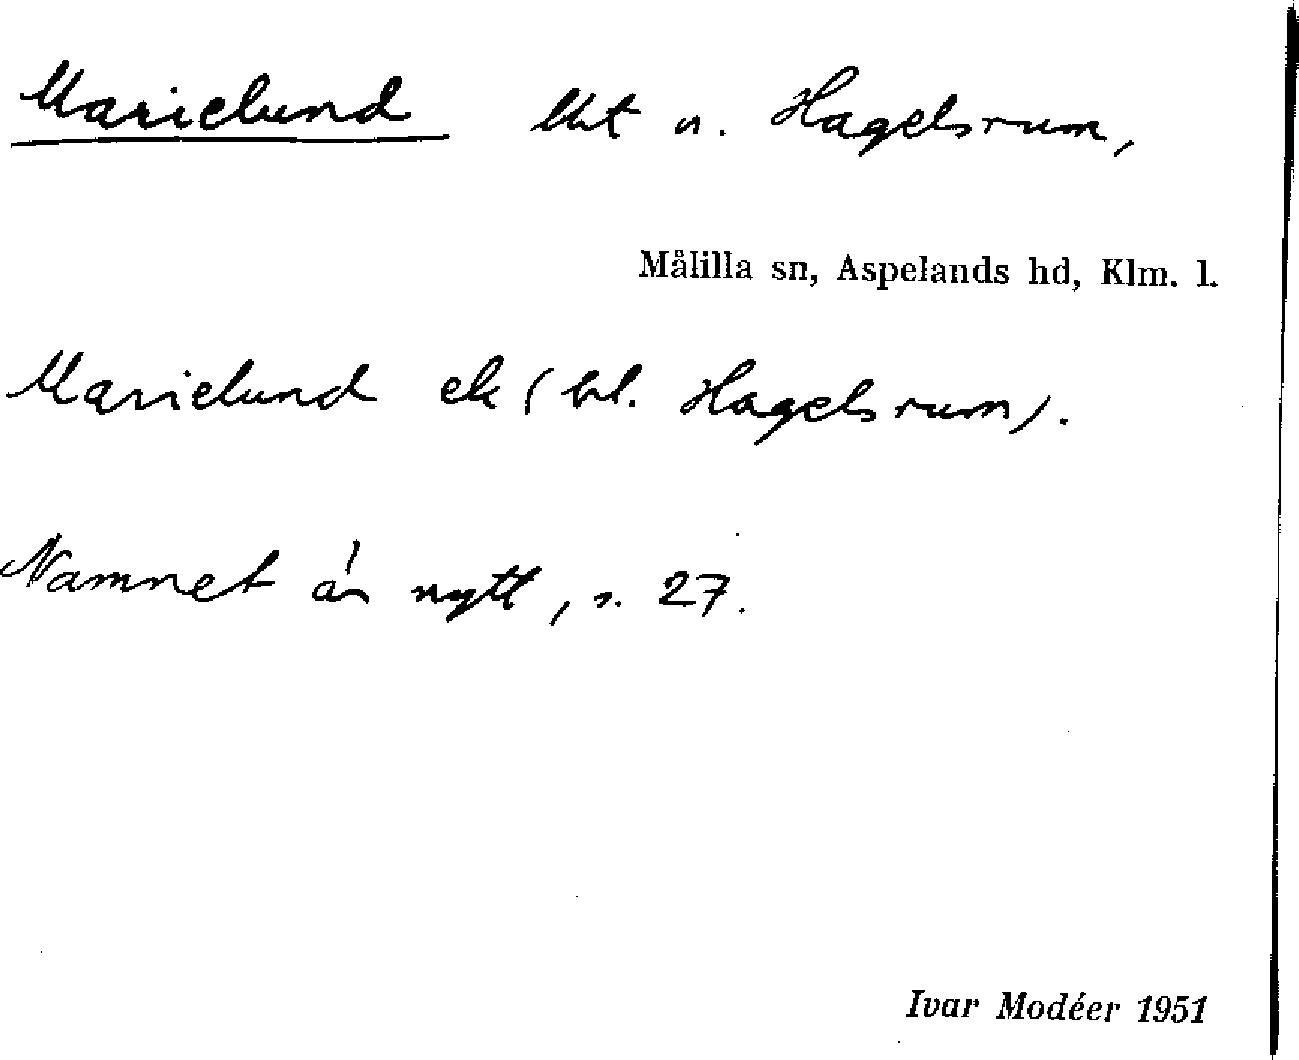 Marielund lht u. Hagelsrum,
Målilla sn, Aspelands hd, Klm. l.
Marielund ek (bl. Hagelsrum).
Namnet är nytt, s. 27.
Ivar Modéer 1951